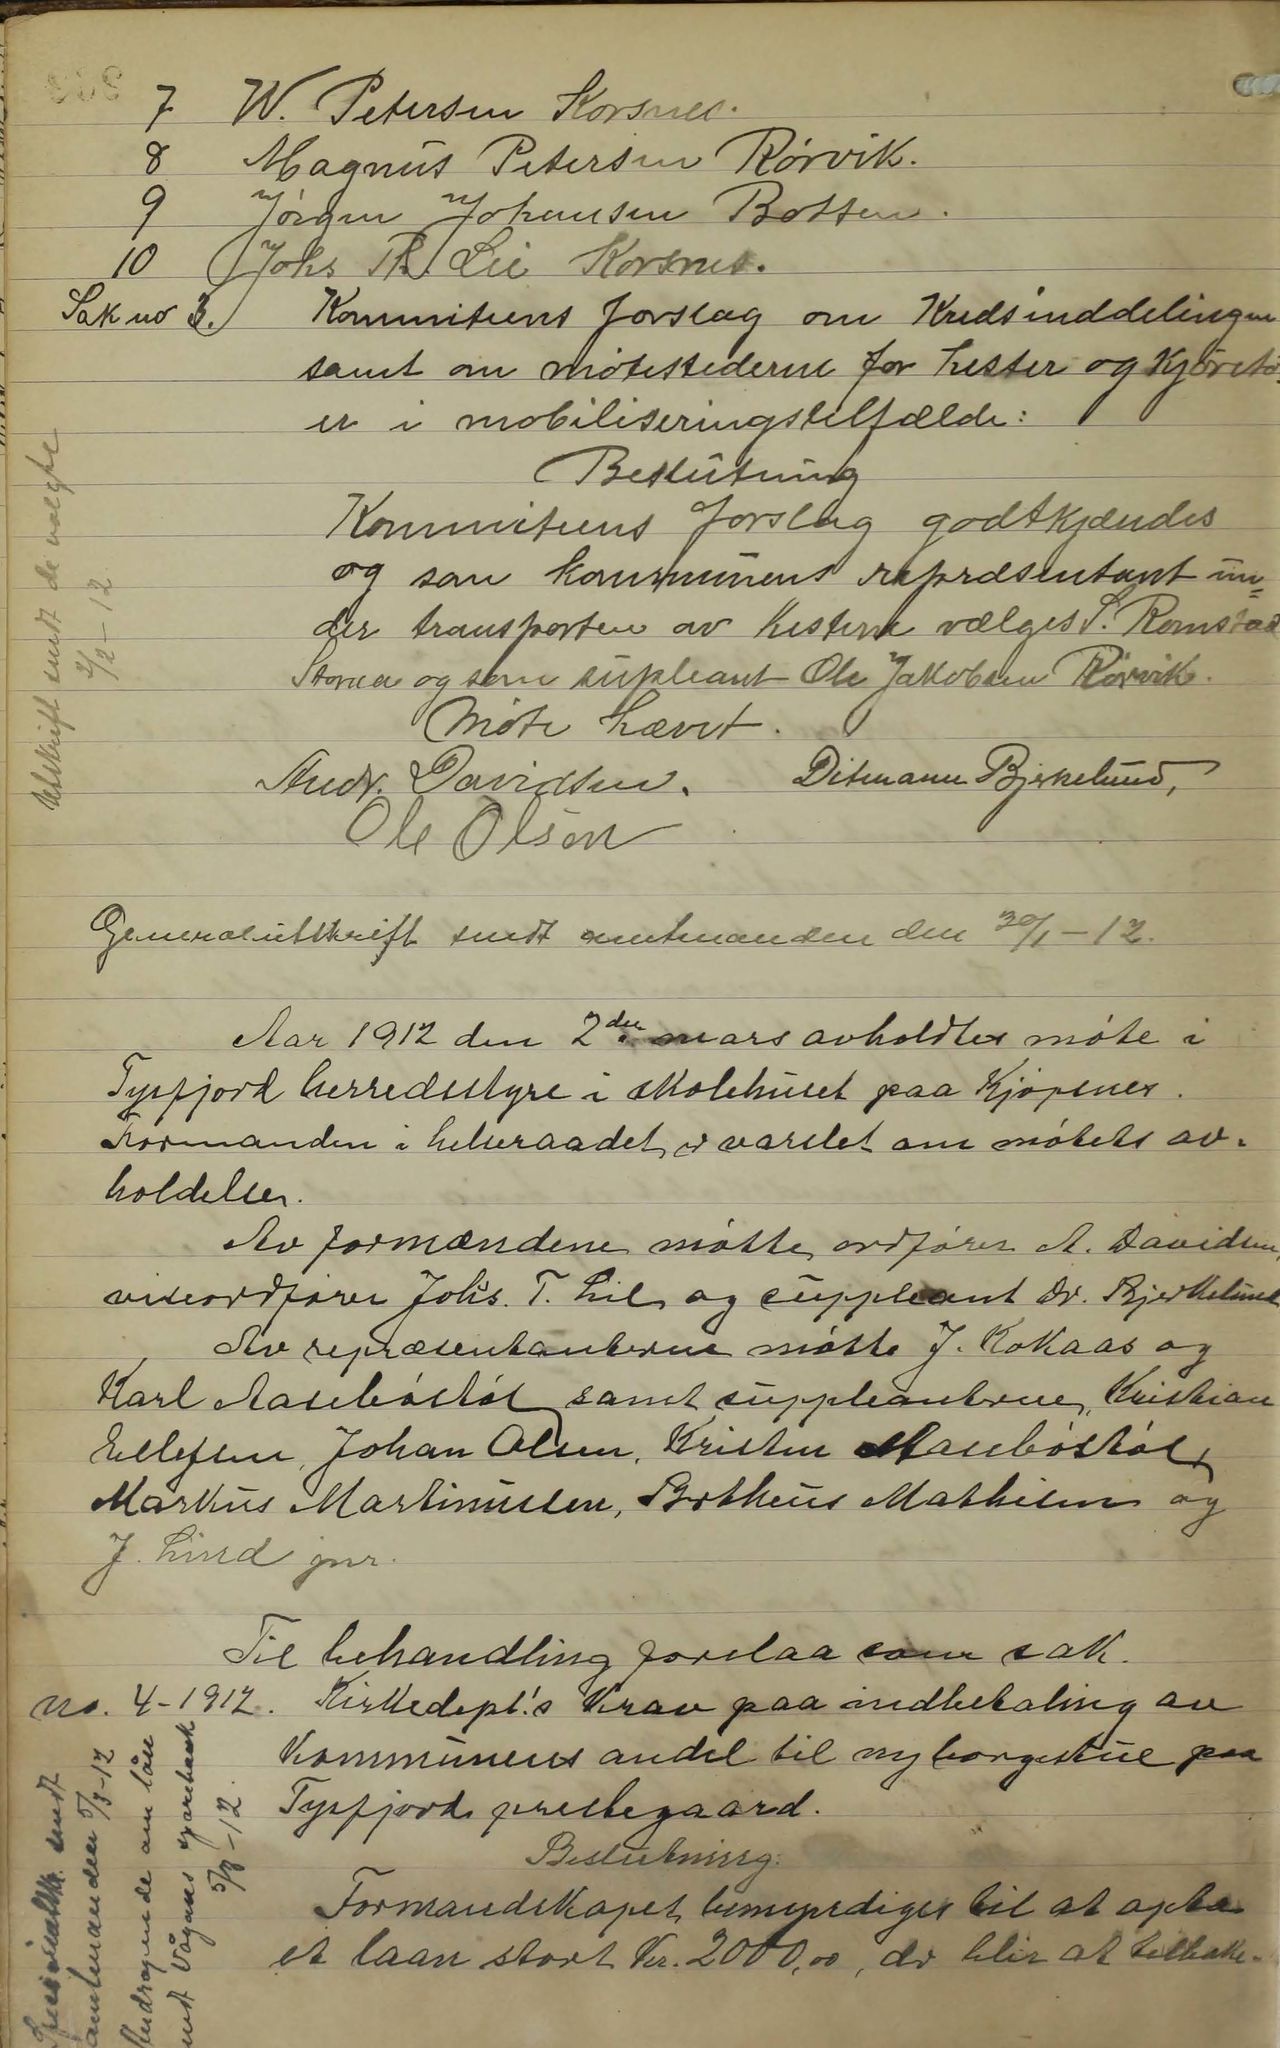 7 W. Petersen Korsnes.
8 Magnus Petersen Rörvik.
9 Jörgen Johansen Botten.
10 Johs Th. Lie Korsnes.
Sak no 3. Kommiteens forslag om Kredsinddelingen
samt om mötestederne for hester og kjöretö
er i mobiliseringstilfælde:
Beslutning
Kommiteens forslag godtkjendes
og som kommunens repræsentant un=
der transporten av hestene vælges S. Romstad
Storvea og som supleant Ole Jakobsen Rörvik.
Möte hævet.
Andr. Davidsen. Ditmann Bjerkelund,
Ole Olsen
Utskrift sendt de valgte
2/2-12
Generalutskrift sendt amtmanden den 30/1-12.
Aar 1912 den 2den mars avholdtes möte i
Tysfjord herredsstyre i skolehuset paa Kjöpsnes.
Formanden i helseraadet er varslet om mötets av-
holdelse.
Av formændene mötte ordförer A. Davidsen,
viseordförer Johs. T. Lie og suppleant Dr. Bjerkelund
Av repræsentanterne mötte J. Kokaas og
Karl Aaseböstöl samt suppleanterne, Kristian
Ellefsen, Johan Olsen, Kristen Aaseböstöl,
Markus Martinussen, Brotheus Mathisen og
J. Lind jnr.
Til behandling forelaa som sak.
no. 4-1912. Kirkedept.'s krav paa indbetaling av
kommunens andel til ny borgestue paa
Tysfjord prestegaard.
Beslutning.
Formandskapet bemyndiges til at opta
et laan stort kr. 2000,00, der blir at tilbake-
Specialutskr. sendt
amtmanden 5/3-12
Andragende om lån
sendt Vågans sparebank
5/3-12.